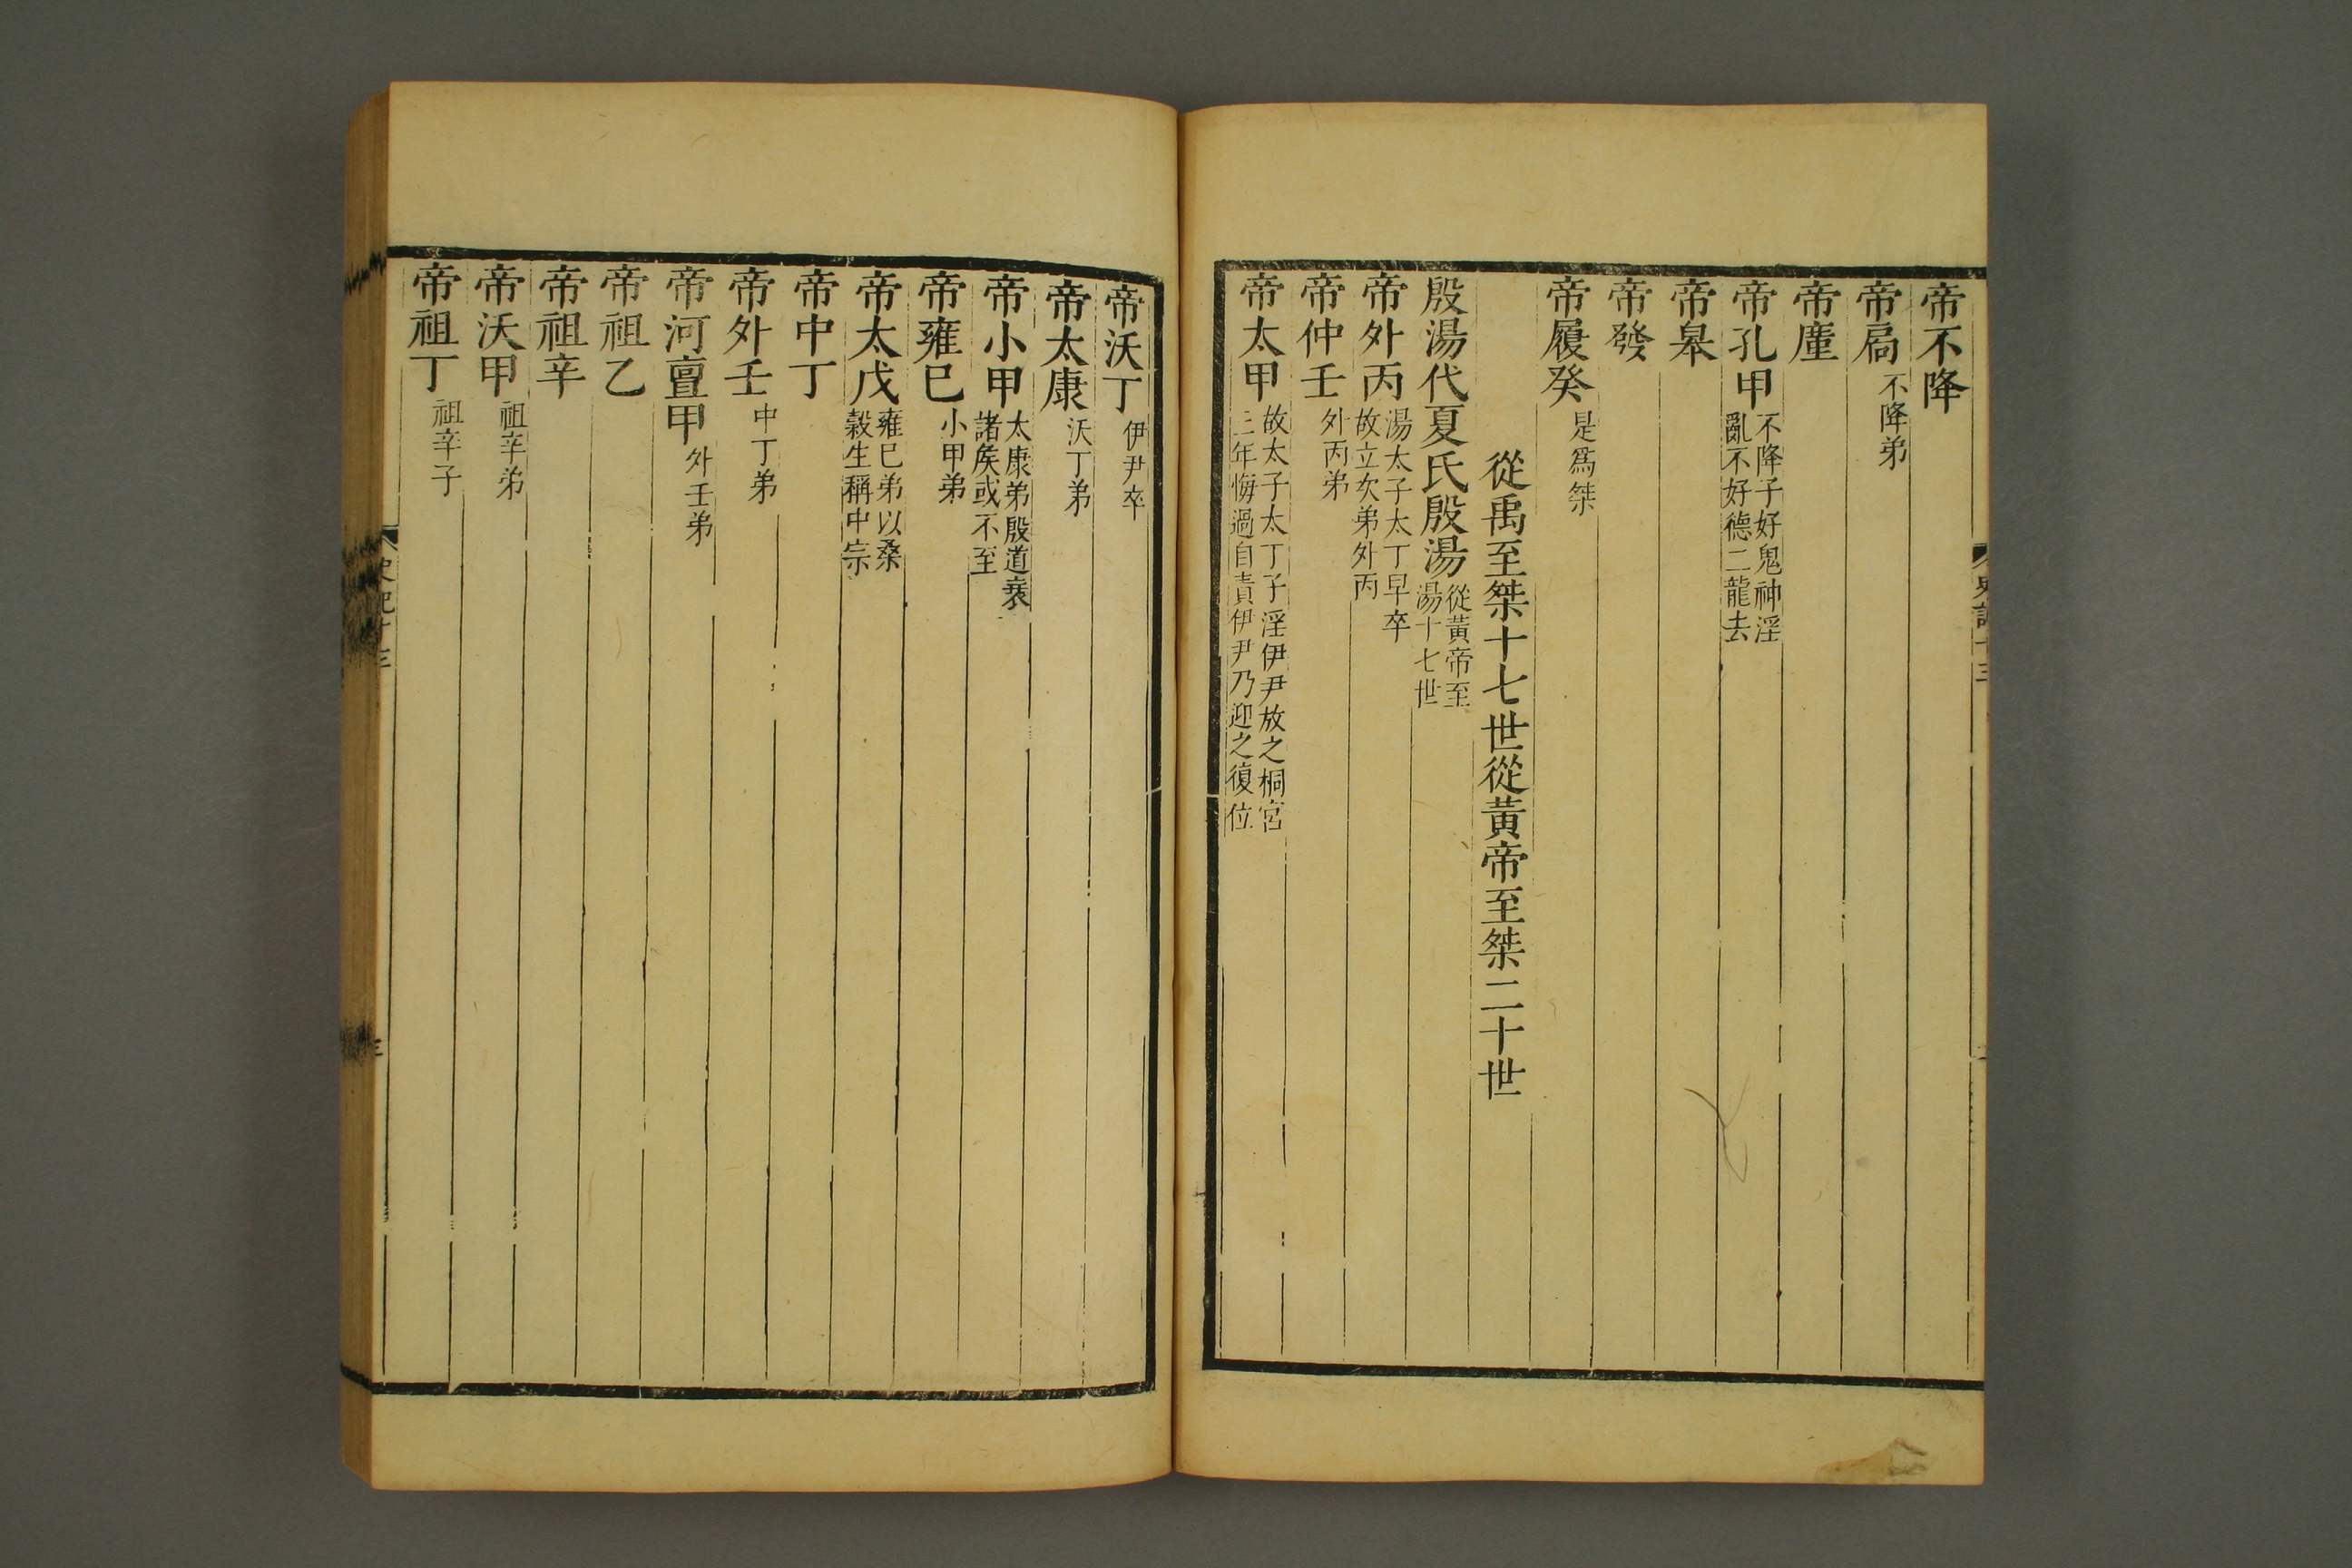 帝不降
帝扃不降弟
帝廑
帝孔甲不降子好鬼神淫
亂不好德二龍去
帝皋
帝發
帝履癸是爲桀
從禹至桀十七世從黃帝至桀二十世
殷湯代夏氏殷湯從黃帝至
湯十七世
帝外丙湯太子太丁早卒
故立次弟外丙
帝仲壬外丙弟
帝太甲故太子太丁子淫伊尹放之桐宮
三年悔過自責伊尹乃迎之復位
帝沃丁伊尹卒
帝太康沃丁弟
帝小甲太康弟殷道衰
諸矦或不至
帝雍巳小甲弟
帝太戊雍巳弟以桑
榖生稱中宗
帝中丁
帝外壬中丁弟
帝河亶甲外壬弟
帝祖乙
帝祖辛
帝沃甲祖辛弟
帝祖丁祖辛子
史記十三